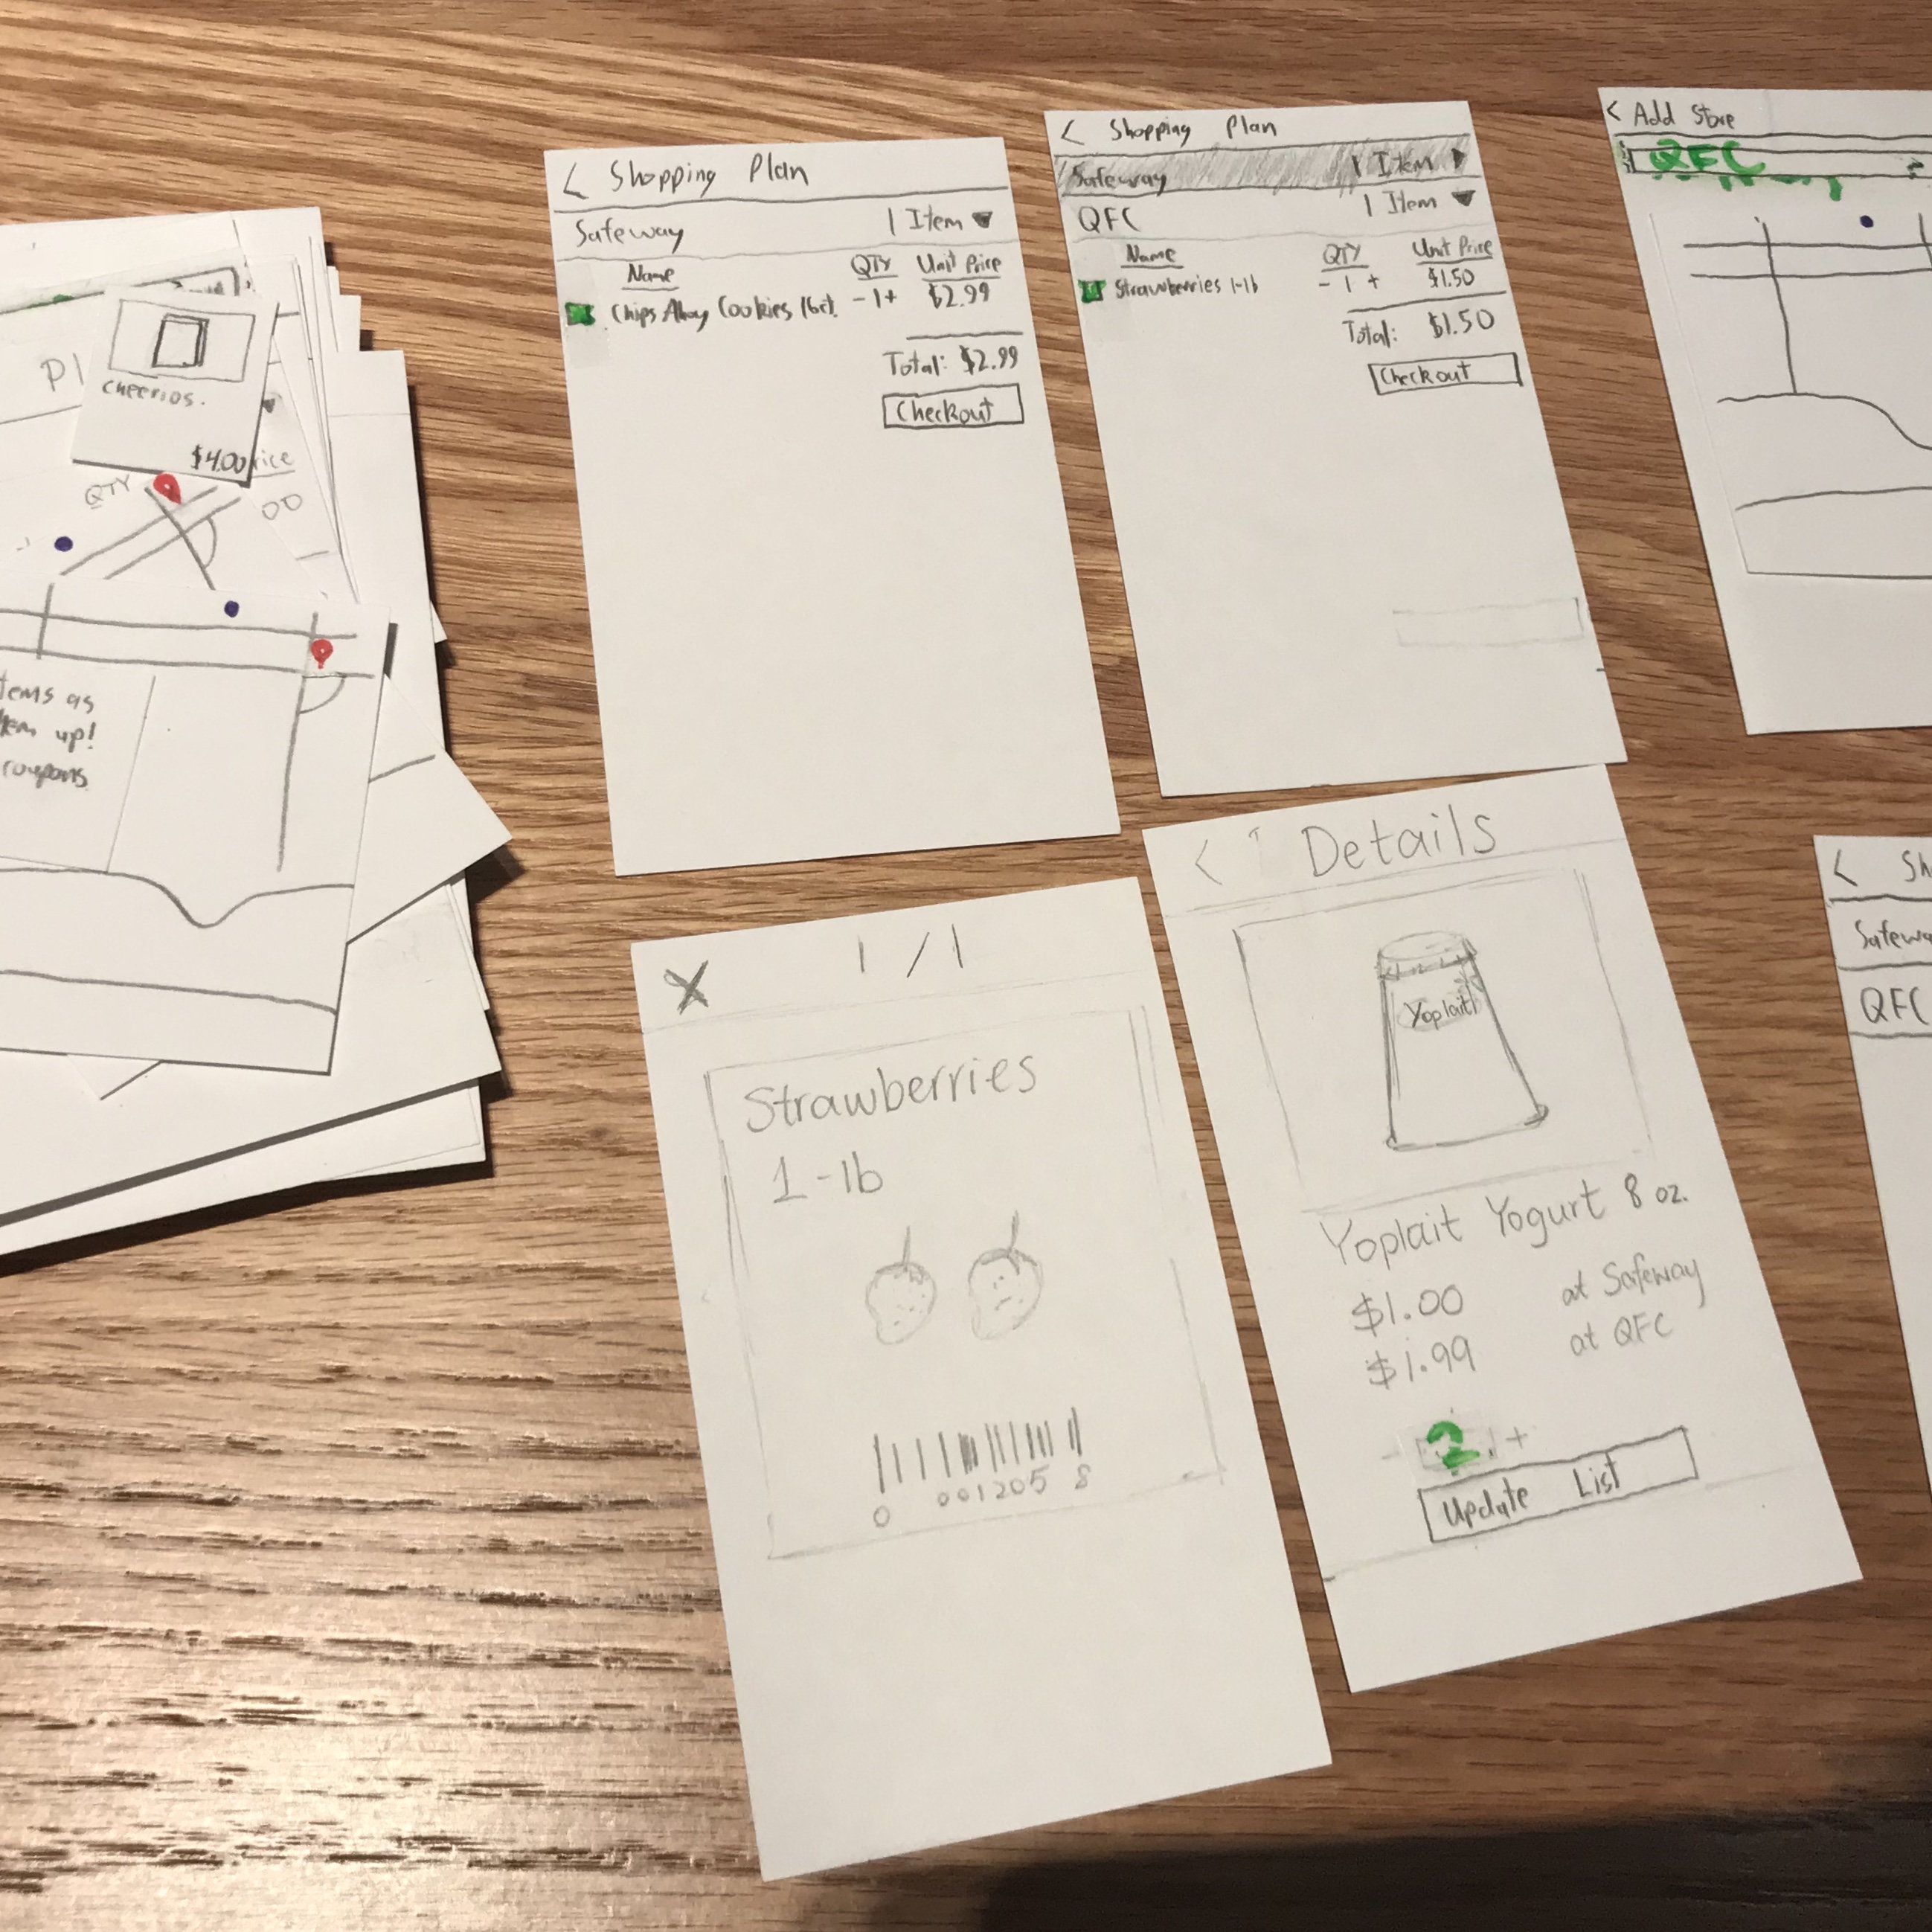 Pl
cheerios.
$4.00
rice
QTY
00
tems as
em up!
coupons
< Shopping Plan
Safeway 1 Item ▼
Name QTY Unit Price
Chips Ahoy Cookies - 1 + $2.99
Total: $2.99
Checkout
< Shopping Plan
Safeway 1 Item ▶
QFC 1 Item ▼
Name QTY Unit Price
Strawberries 1-lb - 1 + $1.50
Total: $1.50
Checkout
< Add Store
QFC
X 1/1
Strawberries
1-lb
0 001205 8
< Details
Yoplait
Yoplait Yogurt 8 oz.
$1.00 at Safeway
$1.99 at QFC
- 2 +
Update List
< Sh
Safewa
QFC